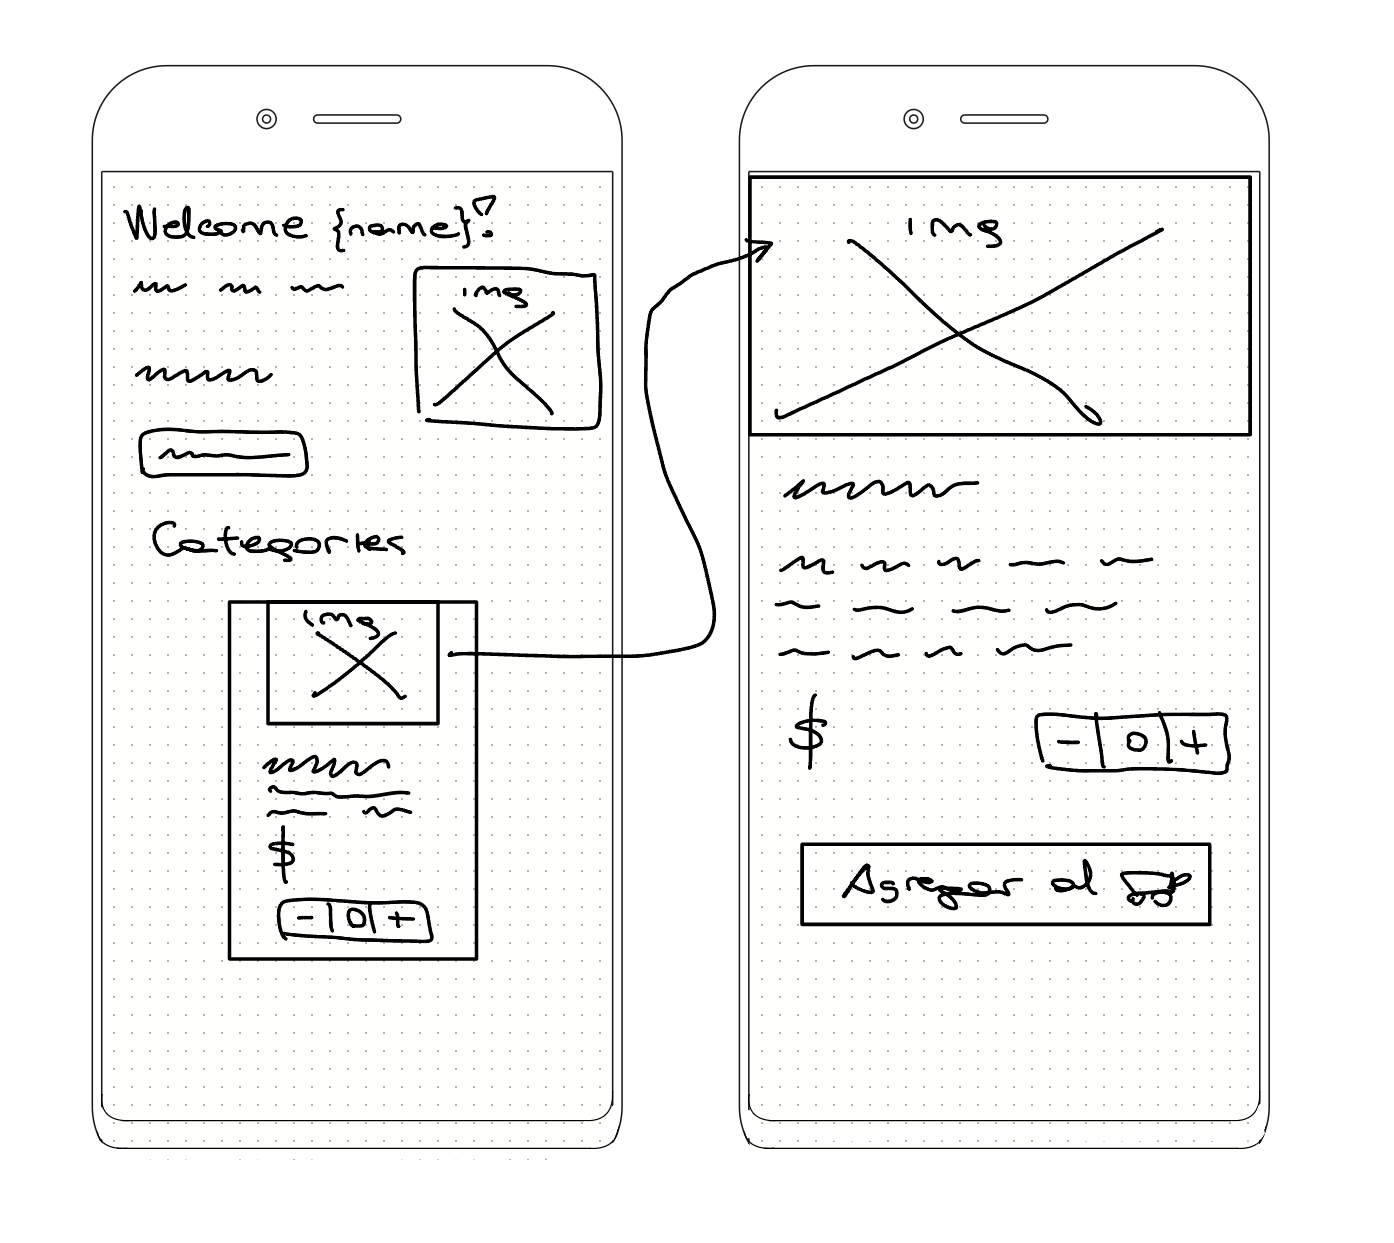 Welcome {name}!
img
Categories
img
$
- 0 +
img
$
- 0 +
Agregar al